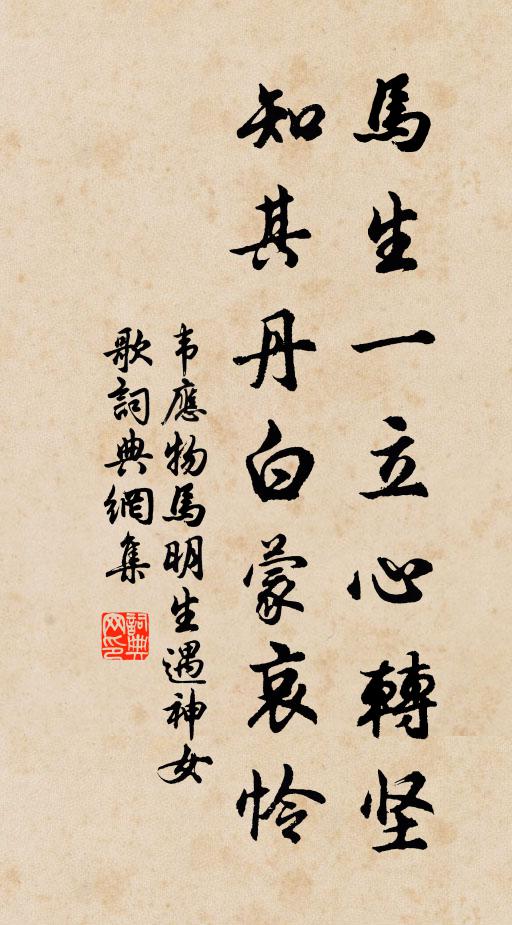 馬生一立心轉坚
知其丹白蒙哀怜
韦應物馬明生遇神女
歌詞典網集
詞典
网印